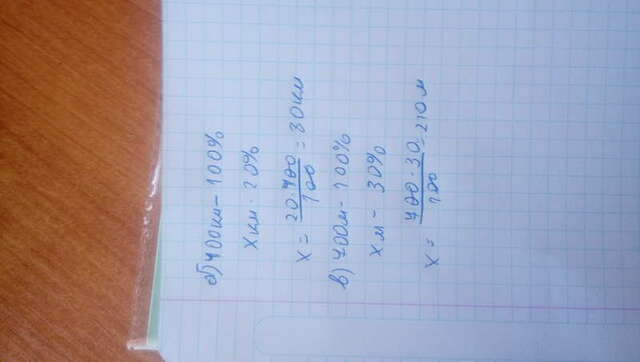 б) 400км - 100%
х км - 20%
х = 20·400/100 = 80км
в) 700м - 100%
х м - 30%
х = 700·30/100 = 210 м